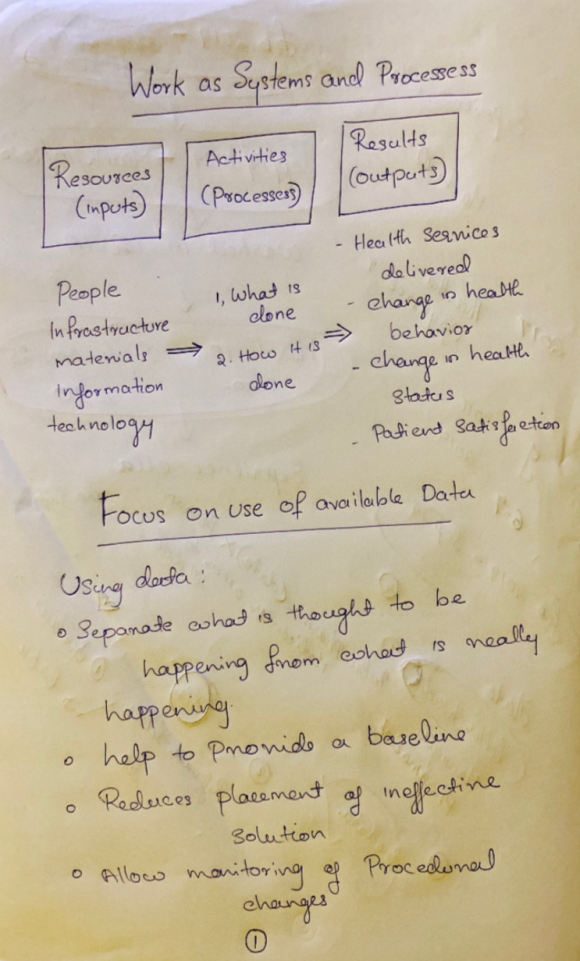 Work as Systems and Processess
Resources
(inputs)
Activities
(Processess)
Results
(outputs)
People
Infrastructure
materials
Information
technology
⇒
1, What is
done
2. How it is
done
⇒
- Health Services
delivered
- change in health
behavior
- change in health
Status
- Patient Satisfaction
Focus on use of available Data
Using data :
o Separate what is thought to be
happening from what is really
happening.
o help to Provide a baseline
o Reduces placement of ineffective
solution
o Allow monitoring of Procedural
changes
1